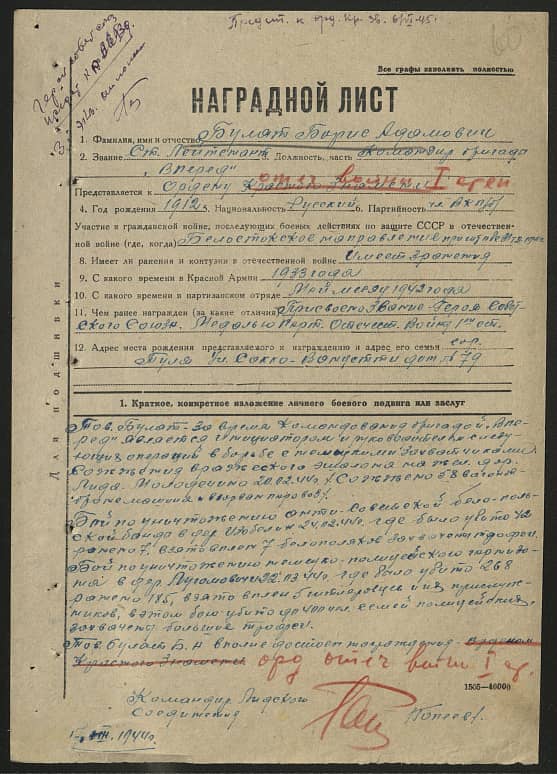 Предст. к орд. Кр. Зв. 6/VI-45 г.
60
Все графы заполнить полностью
НАГРАДНОЙ ЛИСТ
1. Фамилия, имя и отчество Булат Борис Адамович
2. Звание Ст. Лейтенант 3. Должность, часть Командир бригады
„Вперед"
Представляется к Ордену Красное Знамя отеч войны I степ
4. Год рождения 1912 5. Национальность Русский 6. Партийность чл ВКП/б/
7. Участие в гражданской войне, последующих боевых действиях по защите СССР и отечествен-
ной войне (где, когда) Белостокское направление
8. Имеет ли ранения и контузии в отечественной войне Имеет ранения
9. С какого времени в Красной Армии 1933 года
10. С какого времени в партизанском отряде Май месяц 1942 года
11. Чем ранее награжден (за какие отличия) Присвоено Звание Героя Совет-
ского Союза. Медалью Парт. Отечест. Войны 1ой ст.
12. Адрес места рождения представляемого к награждению и адрес его семьи гор.
Тула ул. Сакко-Ванцетти дом № 79
Для подшивки
1. Краткое, конкретное изложение личного боевого подвига или заслуг
Тов. Булат за время командования бригадой „Впе-
ред" является инициатором и руководителем следу-
ющих операций в борьбе с немецкими захватчиками
Сожжение вражеского эшелона на жел. дор.
Лида-Молодечно 20.02.44 г. Сожжено 58 вагонов
бронемашина и взорван паровоз.
Бой по уничтожению анти-советской бело-поль-
ской банды в дер 24.02.44 г. где было убито 42
ранено 7, взято в плен 7 белополяков захвачены трофеи.
Бой по уничтожению немецко-полицейского гарнизо-
на в дер. 22.03.44 г. где было убито 268
ранено 185, взято в плен гитлеровцев и их приспешни-
ков, в этом бою убито до 400 чел. семей полицейских,
захвачены большие трофеи.
Тов. Булат Б. А вполне достоин награждения орденом
Красного Знамени орд отеч войны I ст.
1505—10000
Командир Лидского
Соединения
1944 г.